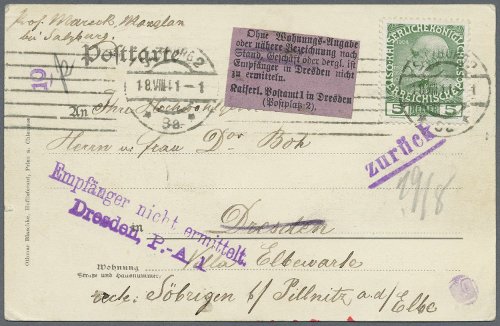 Prof. Mareck, Maxglan
bei Salzburg.
Postkarte
SALZBURG 2
18.VIII.11-1
* 3a *
10
Ohne Wohnungs-Angabe
oder nähere Bezeichnung nach
Stand, Geschäft oder dergl. ist
Empfänger in Dresden nicht
zu ermitteln.
Kaiserl. Postamt 1 in Dresden
(Postplatz 2).
5
5
An
Ihre Hochwohl
Herrn u frau Dor Boh
zurück
29/8
Empfänger nicht ermittelt.
Dresden, P.-A. 1
in
Dresden
Villa Elbewarte
Wohnung
Strasse und Hausnummer:
rech: Söbrigen b/ Pillnitz a.d/ Elbe